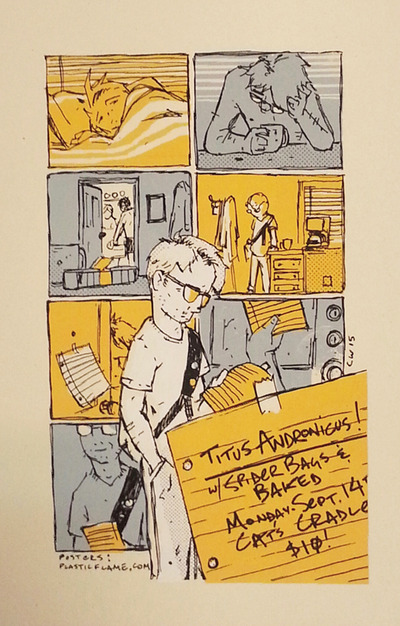 CW15
TITUS ANDRONICUS!
W/ SPIDER BAGS &
BAKED
MONDAY-SEPT. 14TH
CAT'S CRADLE
$10!
POSTERS:
PLASTICFLAME.COM